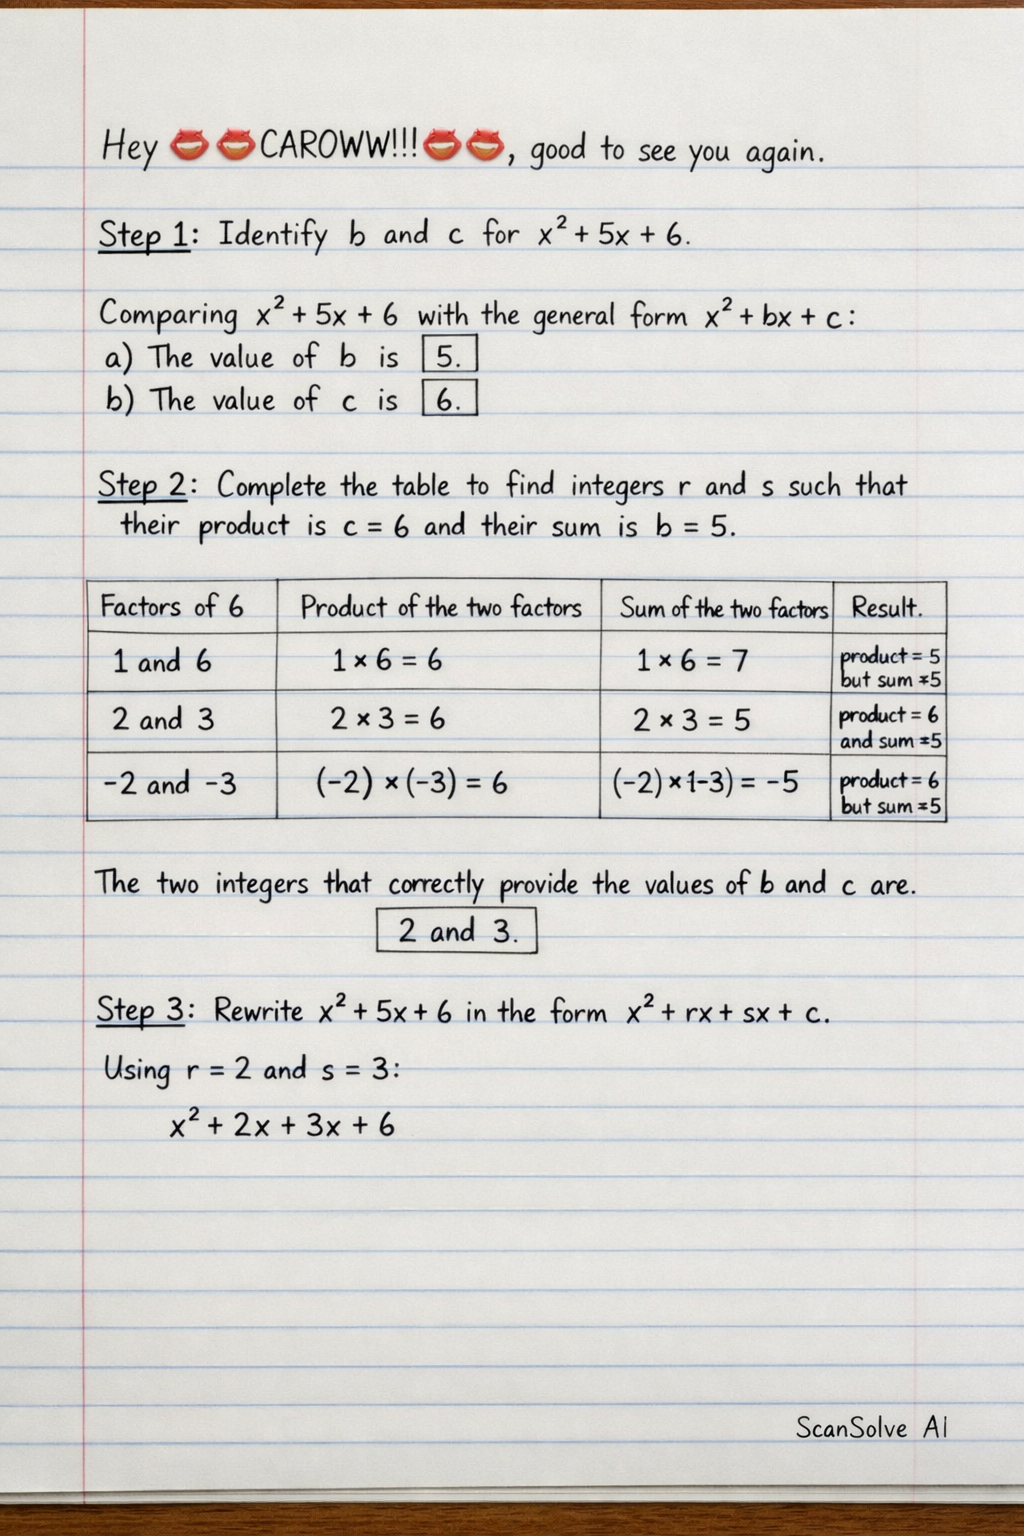 Hey 👄👄CAROWW!!!👄👄, good to see you again.
Step 1: Identify b and c for x² + 5x + 6.
Comparing x² + 5x + 6 with the general form x² + bx + c:
a) The value of b is 5.
b) The value of c is 6.
Step 2: Complete the table to find integers r and s such that
their product is c = 6 and their sum is b = 5.
Factors of 6 Product of the two factors Sum of the two factors Result.
1 and 6 1 × 6 = 6 1 × 6 = 7 product = 5
but sum ≠5
2 and 3 2 × 3 = 6 2 × 3 = 5 product = 6
and sum =5
-2 and -3 (-2) × (-3) = 6 (-2)×1-3) = -5 product = 6
but sum ≠5
The two integers that correctly provide the values of b and c are.
2 and 3.
Step 3: Rewrite x² + 5x + 6 in the form x² + rx + sx + c.
Using r = 2 and s = 3:
x² + 2x + 3x + 6
ScanSolve AI